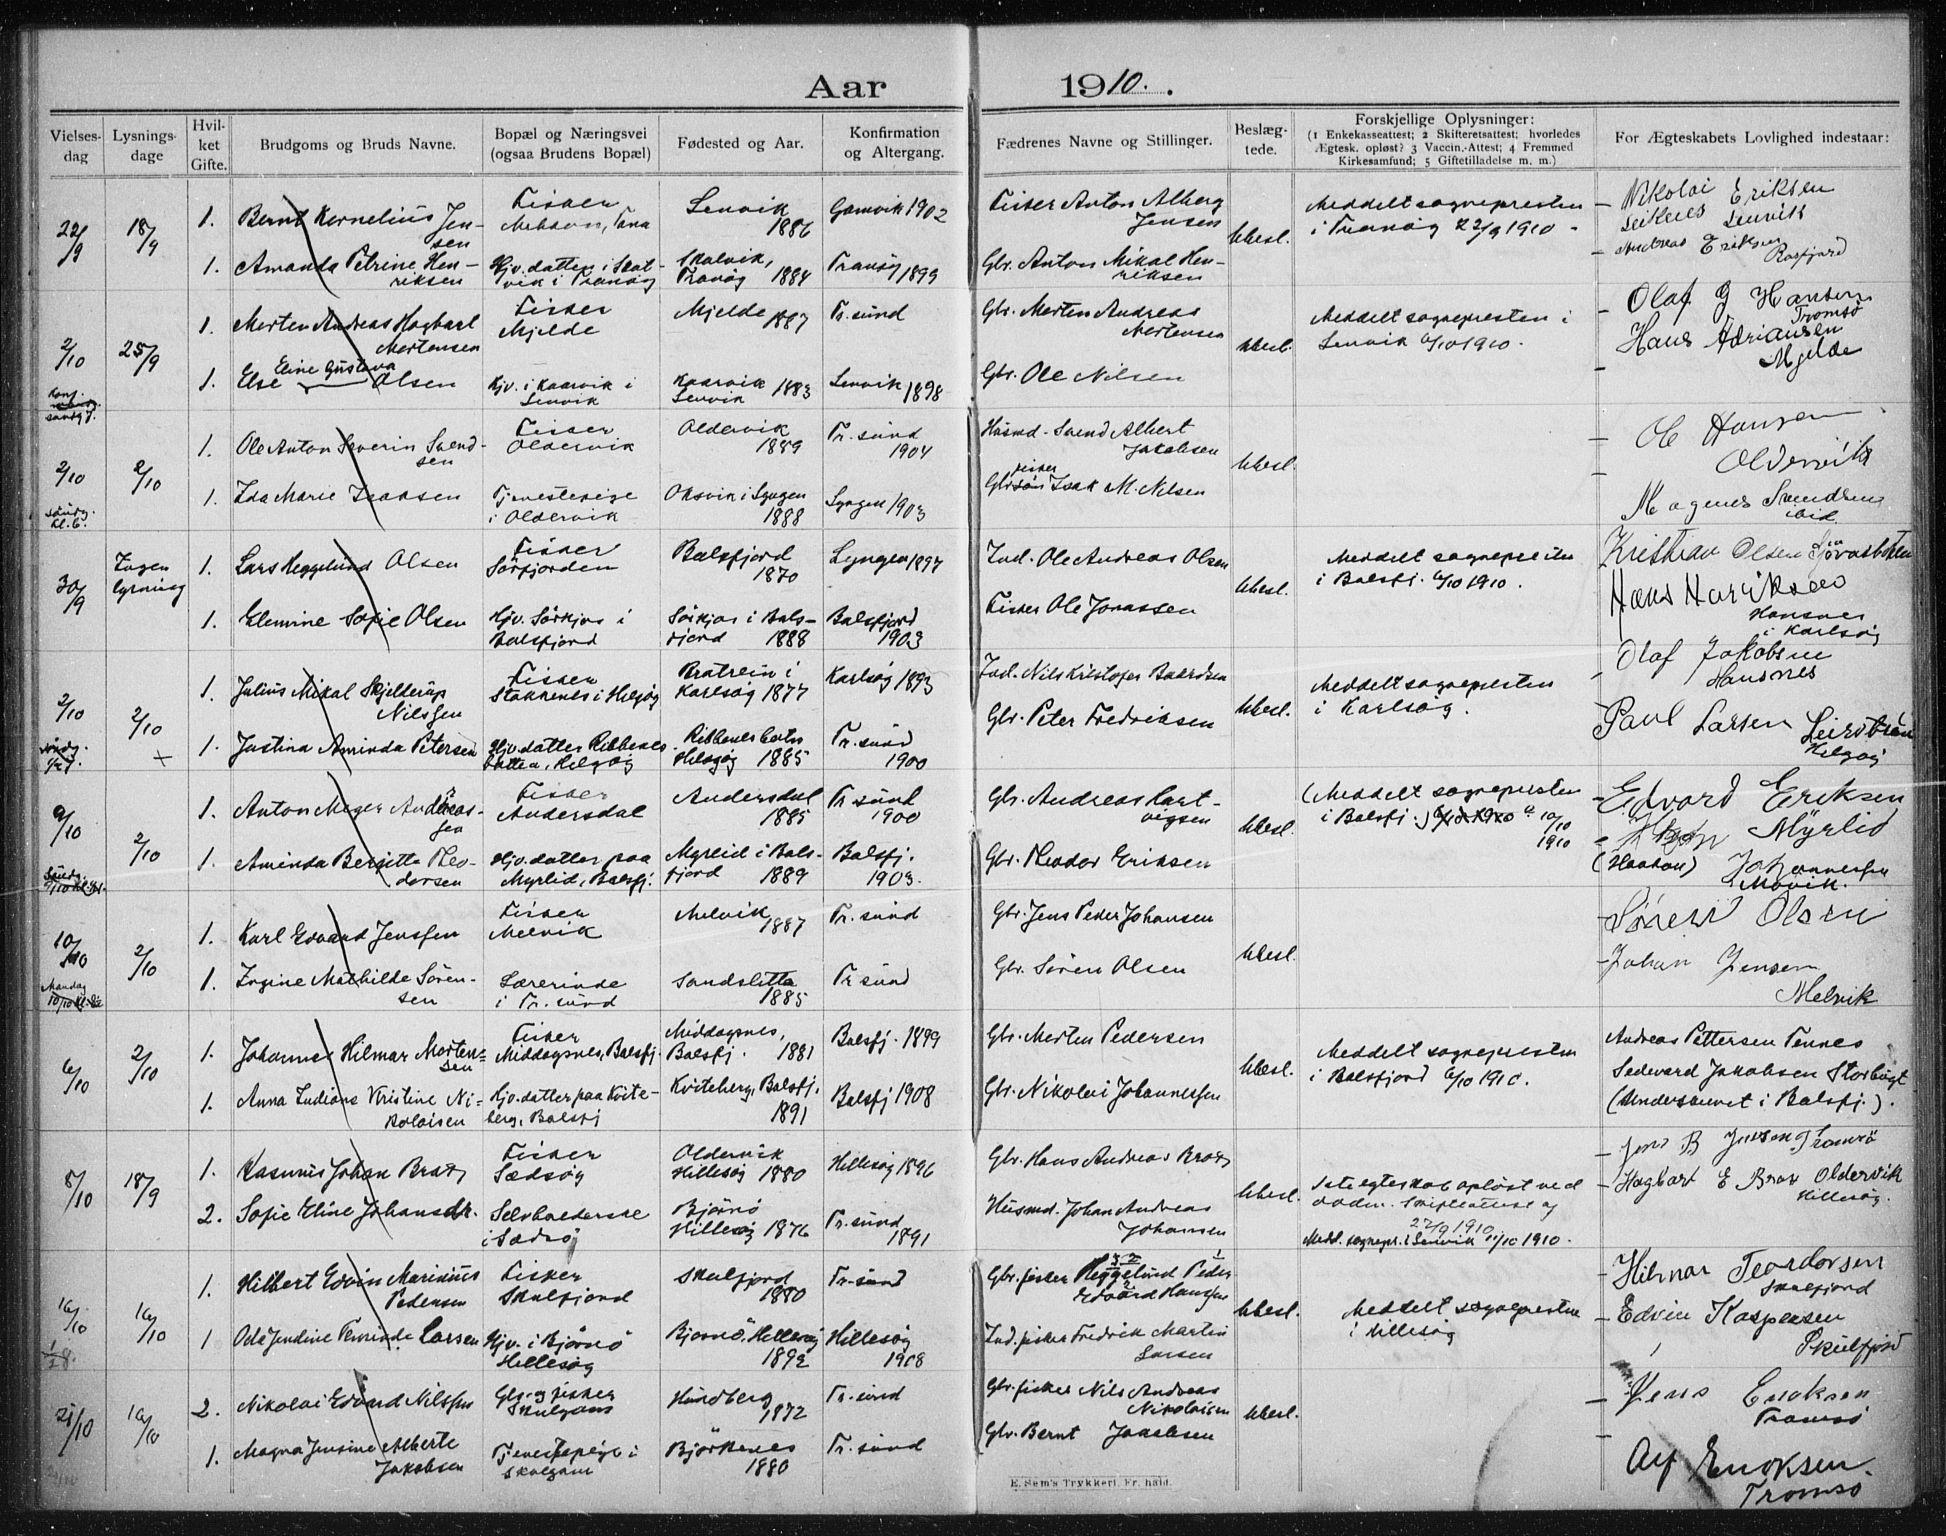 Aar 1910.
Vielses-dag
Lysnings-dage
Hvil-ket Gifte.
Brudgoms og Bruds Navne.
Bopæl og Næringsvei (ogsaa Brudens Bopæl)
Fødested og Aar.
Konfirmation og Altergang.
Fædrenes Navne og Stillinger.
Beslæg-tede.
Forskjellige Oplysninger:
(1 Enkekasseattest; 2 Skifteretsattest; hvorledes
Ægtesk. opløst? 3 Vaccin.-Attest; 4 Fremmed
Kirkesamfund; 5 Giftetilladelse m. m.)
For Ægteskabets Lovlighed indestaar:
22/9 18/9
1. Bernt Kornelius Jen-
sen
Fisker
Mehavn, Tana
Lenvik
1886
Gamvik 1902
Fisker Anton Alberg
Jensen
Ubesl.
Meddelt sognepresten
i Tranøy 22/9 1910 -
Nikolai Eriksen
Lenvik
1. Amanda Petrine Hen-
riksen
Hjv. datter i Skat-
vik i Tranøy
Skalvik,
Tranøy 1884
Tranøy 1899
Gbr. Anton Mikal Hen-
riksen
Andreas Eriksen
Rosfjord
2/10 25/9
1. Morten Andreas Hagbart
Mortensen
Fisker
Mjelde
Mjelde 1887
Tr.sund
Gbr. Morten Andreas
Mortensen
Ubesl.
Meddelt sognepresten i
Lenvik 6/10 1910.
Olaf G Hansen
Tromsø
Hans Adriansen
Mjelde
Eline Gustava
1. Else Olsen
Hjv. i Kaarvik i
Lenvik
Kaarvik
Lenvik 1883
Lenvik 1898
Gbr. Ole Nilsen
2/10 2/10
1. Ole Anton Severin Svend-
sen
Fisker
Oldervik
Oldervik
1889
Tr.sund
1904
Husmd. Svend Albert
Jakobsen
Ubesl.
Ole Hansen
Oldervik
søndg.
kl. 6.
1. Ida Marie Isaksen
Tjenestepige
i Oldervik
Oksvik i Lyngen
1888
Lyngen 1903
fisker
Isak M. Nilsen
Magnus Svendsen
ibid.
30/9 Ingen
lysning
1. Lars Heggelund Olsen
Fisker
Sørfjorden
Balsfjord
1870
Lyngen 1897
Ind. Ole Andreas Olsen
Ubesl.
Meddelt sognepresten
i Balsfj. 6/10 1910.
Kristian Olsen
1. Elemine Sofie Olsen
Hjv. Sørkjos i
Balsfjord
Sørkjos i Bals-
fjord 1888
Balsfjord
1903
Fisker Ole Jonassen
Hans Henriksen
Hansnes
i Karlsøy
2/10 2/10
1. Julius Mikal Skjelderup
Nilssen
Fisker
Stakkenes i Helgøy
Bratrein i
Karlsøy 1877
Karlsøy 1893
Ind. Nils Kristofer Baardsen
Ubesl.
Meddelt sognepresten
i Karlsøy.
Olaf Jakobsen
Hansnes
1. Justina Aminda Petersen
Hjv. datter Ribbenes-
botten, Helgøy
Ribbenesbotn
Helgøy 1885
Tr.sund
1900
Gbr. Peter Fredriksen
Paul Larsen
Helgøy
9/10 2/10
1. Anton Meyer Andreas-
sen
Fisker
Andersdal
Andersdal
1885
Tr sund
1900
Gbr. Andreas Hart-
vigsen
Ubesl.
(Meddelt sognepresten
i Balsfj.) 10/10
1910
Edvard Eriksen
Myrlid
1. Aminda Bergitte Teo-
dorsen
Hjv. datter paa
Myrlid, Balsfj.
Myrlid i Bals-
fjord 1889
Balsfj.
1903.
Gbr. Teodor Eriksen
(Haakon) Johannessen
Movik.
10/10 2/10
1. Karl Edvard Jenssen
Fisker
Melvik
Melvik
1887
Tr.sund
Gbr. Jens Peder Johansen
Ubesl.
Søren Olsen
Mandag
1. Ingine Mathilde Søren-
sen
Lærerinde
i Tr. sund
Sandsletta
1885
Tr sund
Gbr. Søren Olsen
Johan Jensen
Melvik
6/10 2/10
1. Johannes Hilmar Morten-
sen
Fisker
Middagsnes, Balsfj.
Middagsnes,
Balsfj. 1881
Balsfj. 1899
Gbr. Morten Pedersen
Ubesl.
Meddelt sognepresten
i Balsfjord 6/10 1910.
Andreas Pettersen Tennes
Sedevard Jakobsen Storbugt
1. Anna Indiane Kristine Ni-
kolaisen
Hjv. datter paa Kvite-
berg, Balsfj
Kviteberg, Balsfj.
1891
Balsfj 1908
Gbr. Nikolai Johannessen
(Underskrevet i Balsfj.).
8/10 18/9
1. Rasmus Johan Brox
Fisker
Sædsøy
Oldervik
Hillesøy 1880
Hillesøy 1896
Gbr. Hans Andreas Brox
Ubesl.
1ste egteskab opløst ved
døden. Skifteattest af
27/9 1910.
Medd. sognepr. i Lenvik 11/10 1910.
Jens B Jensen Tromsø
Hagbart E Brox Oldervik
Hillesøy.
2. Sofie Eline Johansdr.
Selvholderske
i Sædsø
Bjørnø
Hillesøy 1876
Tr.sund
1891
Husmd. Johan Andreas
Johansen
16/10 16/10
1. Hilbert Edvin Marinius
Pedersen
Fisker
Skulfjord
Skulfjord
1880
Tr.sund
Gbr. fisker Heggelund Peder
Edvard Hanssen
Ubesl.
Meddelt sognepresten
i Hillesøy
Hilmar Teordorsen
Skulfjord
1 Oda Jendine Larsen
Hjv. i Bjørnø
Hillesøy
Bjørnø, Hillesøy
1892
Hillesøy
1908
Ind. fisker Fredrik Martin
Larsen
Edvin Kaspersen
Skulfjord
21/10 16/10
2. Nikolai Edvard Nilssen
Gbr. og fisker
Skulgam
Hundberg
1872
Tr.sund
Gbr. fisker Nils Andreas
Nikolaisen
Ubesl.
Jens Enoksen
Tromsø
1. Magna Jensine Alberte
Jakobsen
Tjenestepige i
Skulgam
Bjørknes
1880
Tr.sund
Gbr. Bernt Jakobsen
Alf Enoksen.
Tromsø
E. Sem's Trykkeri, Fr.hald.